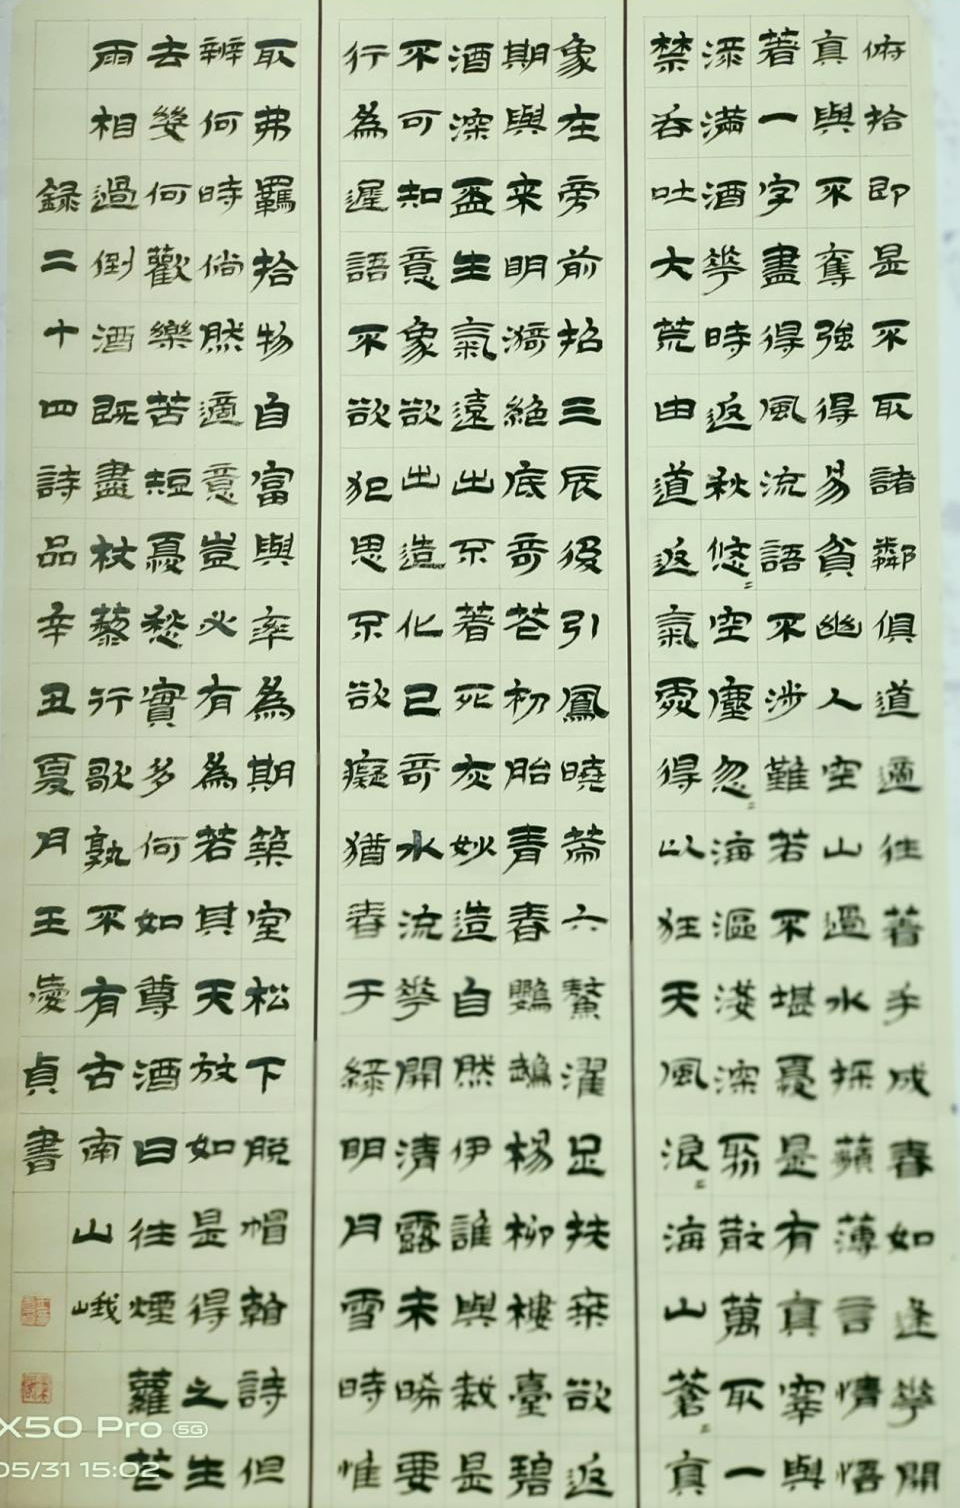 俯拾即是不取諸鄰俱道適往著手成春如逢華開
真與不奪強得易貧幽人空山過水採蘋薄言情悟
著一字盡得風流語不涉難若不堪憂是有真宰與
淥滿酒華時返秋悠〻空塵忽〻海漚淺深聚散萬取一
禁吞吐大荒由道返氣處得以狂天風浪〻海山蒼〻真
象在旁前招三辰後引鳳曉策六鼇濯足扶桒欲返
期與来明漪絕底奇花初胎青春鸚鵡楊柳樓臺碧
酒深盃生氣遠出不著死灰妙造自然伊誰與裁是
不可知意象欲出造化已奇水流華開清露未晞要
行為遲語不欲犯思不欲癡猶春于綠明月雪時惟
取弗羈拾物自富與率為期築室松下脫帽看詩但
辨何時倘然適意豈必有為若其天放如是得之生
去幾何歡樂苦短憂愁實多何如尊酒日往煙蘿花
雨相過倒酒既盡杖藜行歌孰不有古南山峨
錄二十四詩品辛丑夏月王凌貞書
X50 Pro 5G
05/31 15:02